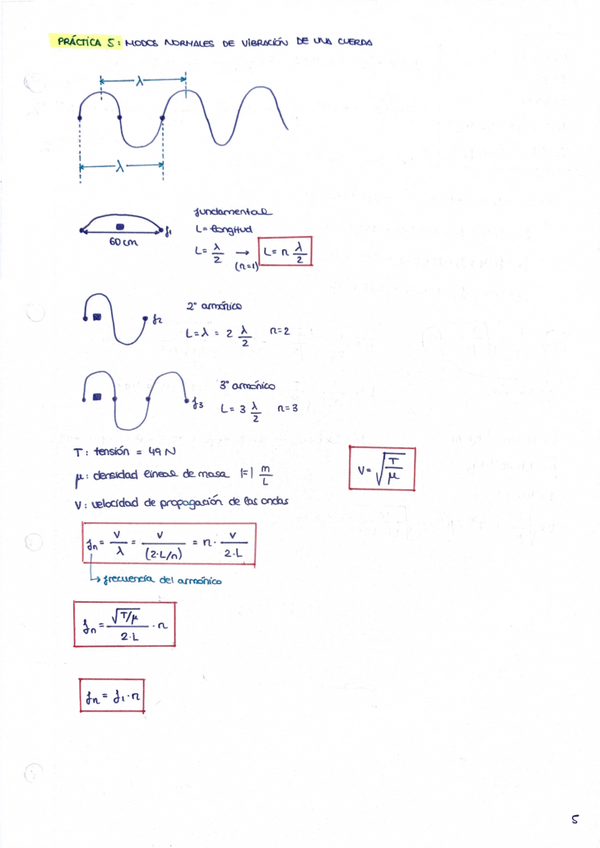 PRÁCTICA 5: MODOS NORMALES DE VIBRACIÓN DE UNA CUERDA
λ
λ
f1
60 cm
fundamental
L = longitud
L = λ/2 → (n=1) L = n λ/2
f2
2º armónico
L = λ = 2 λ/2 n=2
f3
3º armónico
L = 3 λ/2 n=3
T: tensión = 49 N
μ: densidad lineal de masa |=| m/L
V = √(T/μ)
V: velocidad de propagación de las ondas
fn = V/λ = V/(2·L/n) = n · V/2·L
↳ frecuencia del armónico
fn = √T/μ / 2·L · n
fn = f1 · n
5